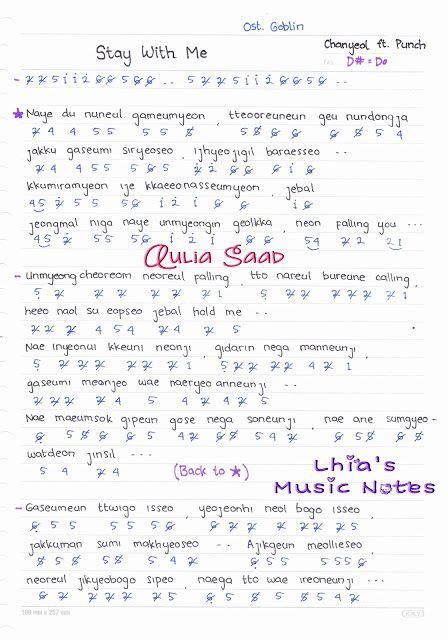 Ost. Goblin
Stay With Me
Chanyeol ft. Punch
D# = Do
- 2 2 5 i i 2 6 6 5 6 6 .. 5 2 2 5 i i 2 6 6 5 6 ..
★ Naye du nuneul gameumyeon , tteooreuneun geu nundongja
2 4 4 5 5 5 5 6 5 6 6 6 6 6 5 4
jakku gaseumi siryeoseo , ijhyeojigil baraesseo --
2 4 4 5 5 5 6 5 i 2 2 6 6 6 i 6
kkumiramyeon ije kkaeeonasseumyeon , jebal
45 2 5 5 5 6 i 2 i 6 6 i 6
jeongmal niga naye unmyeongin geolkka , neon falling you ...
45 2 5 5 5 6 i 2 i 6 6 54 2 2 21
Aulia Saad
- Unmyeongcheoreom neoreul falling , tto nareul bureune calling ,
5 2 2 2 2 2 2 1 5 2 2 2 2 2 2 2 1
heeo naol su eopseo jebal hold me ..
2 2 2 4 5 4 4 2 2 5
Nae inyeonui kkeuni neonji , gidarin nega manneunji ,
5 2 2 2 2 2 2 1 5 2 2 2 2 2 2 1
gaseumi meonjeo wae naeryeo anneunji --
2 2 4 5 4 5 4 2 4 2 5
Nae maeumsok gipeun gose nega saneunji , nae ane sumgyeo-
watdeon jinsil ...
5 4 4 2
(Back to ★)
Lhia's
Music Notes
- Gaseumeun ttwigo isseo , yeojeonhi neol bogo isseo
6 5 5 5 5 5 6 6 6 2 2 2 2 2 5
jakkuman sumi makhyeoseo -- Ajikgeun meollieseo
neoreul jikyeobogo sipeo , naega tto wae ireoneunji ...
180 mm x 257 mm
KIKY